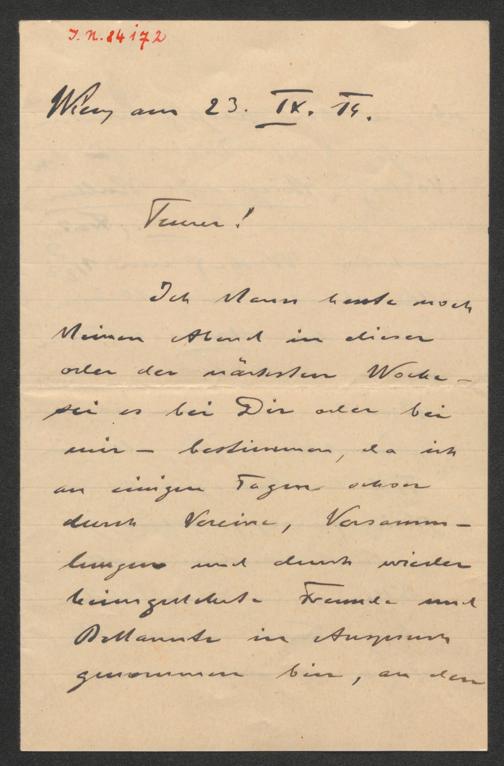 J. N. 84172
Wien, am 23. IX. 14.
Teurer!
Ich kann heute noch
keinen Abend in dieser
oder der nächsten Woche –
sei es bei Dir oder bei
mir – bestimmen, da ich
an einigen Tagen schon
durch Vereine, Versamm-
lungen und durch wieder
heimgekehrte Freunde und
Bekannte in Anspruch
genommen bin, an den